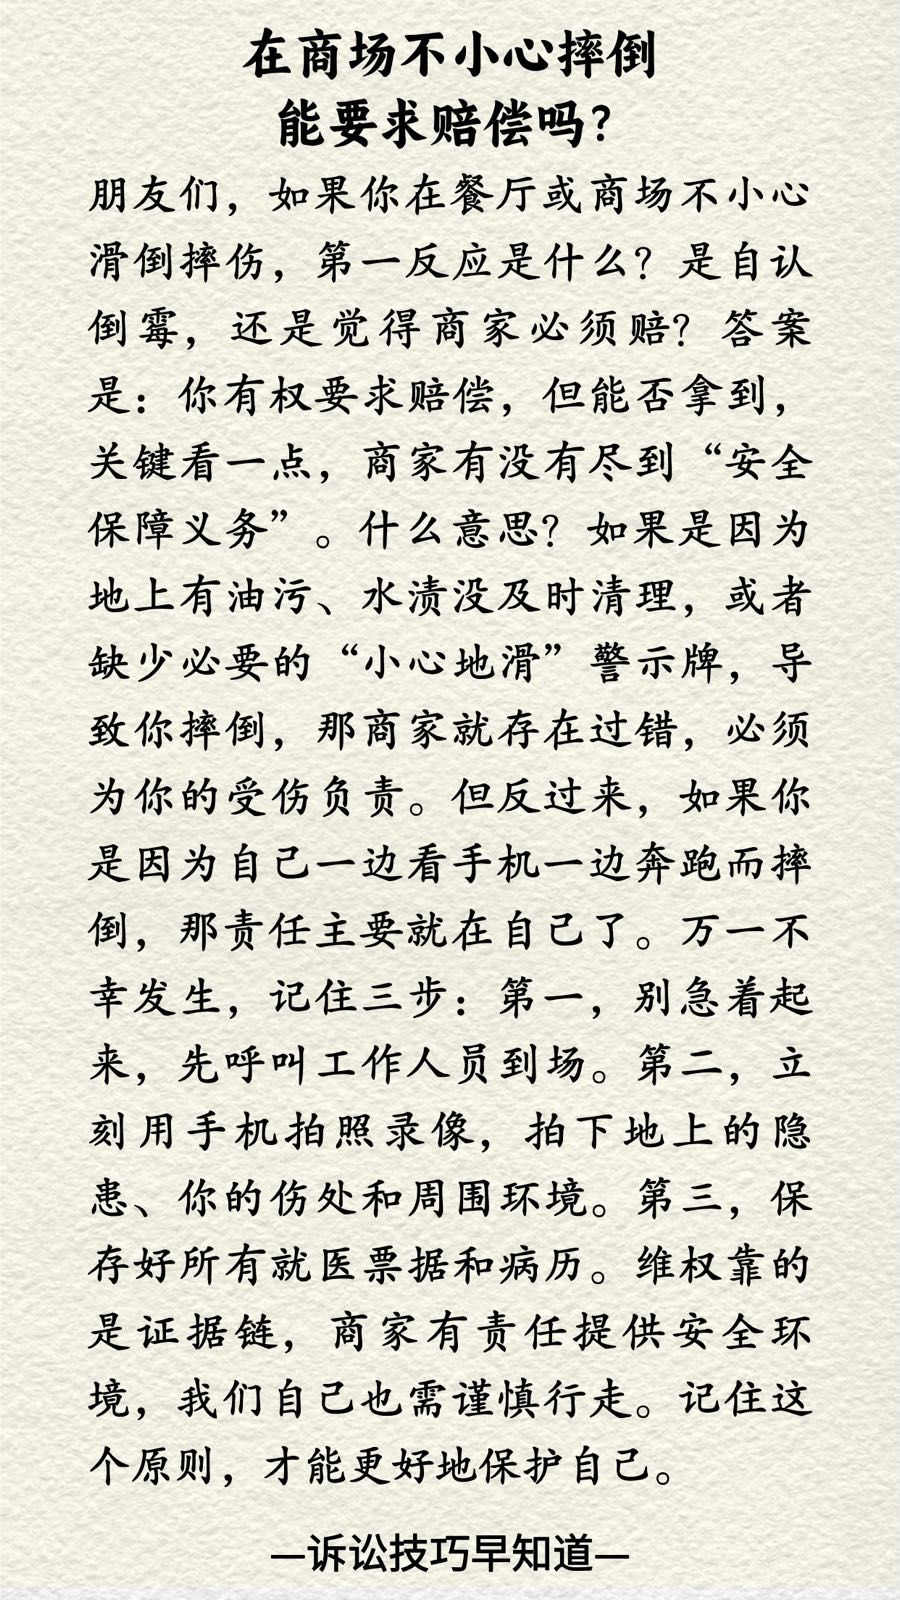 在商场不小心摔倒
能要求赔偿吗？
朋友们，如果你在餐厅或商场不小心
滑倒摔伤，第一反应是什么？是自认
倒霉，还是觉得商家必须赔？答案
是：你有权要求赔偿，但能否拿到，
关键看一点，商家有没有尽到“安全
保障义务”。什么意思？如果是因为
地上有油污、水渍没及时清理，或者
缺少必要的“小心地滑”警示牌，导
致你摔倒，那商家就存在过错，必须
为你的受伤负责。但反过来，如果你
是因为自己一边看手机一边奔跑而摔
倒，那责任主要就在自己了。万一不
幸发生，记住三步：第一，别急着起
来，先呼叫工作人员到场。第二，立
刻用手机拍照录像，拍下地上的隐
患、你的伤处和周围环境。第三，保
存好所有就医票据和病历。维权靠的
是证据链，商家有责任提供安全环
境，我们自己也需谨慎行走。记住这
个原则，才能更好地保护自己。
—诉讼技巧早知道—